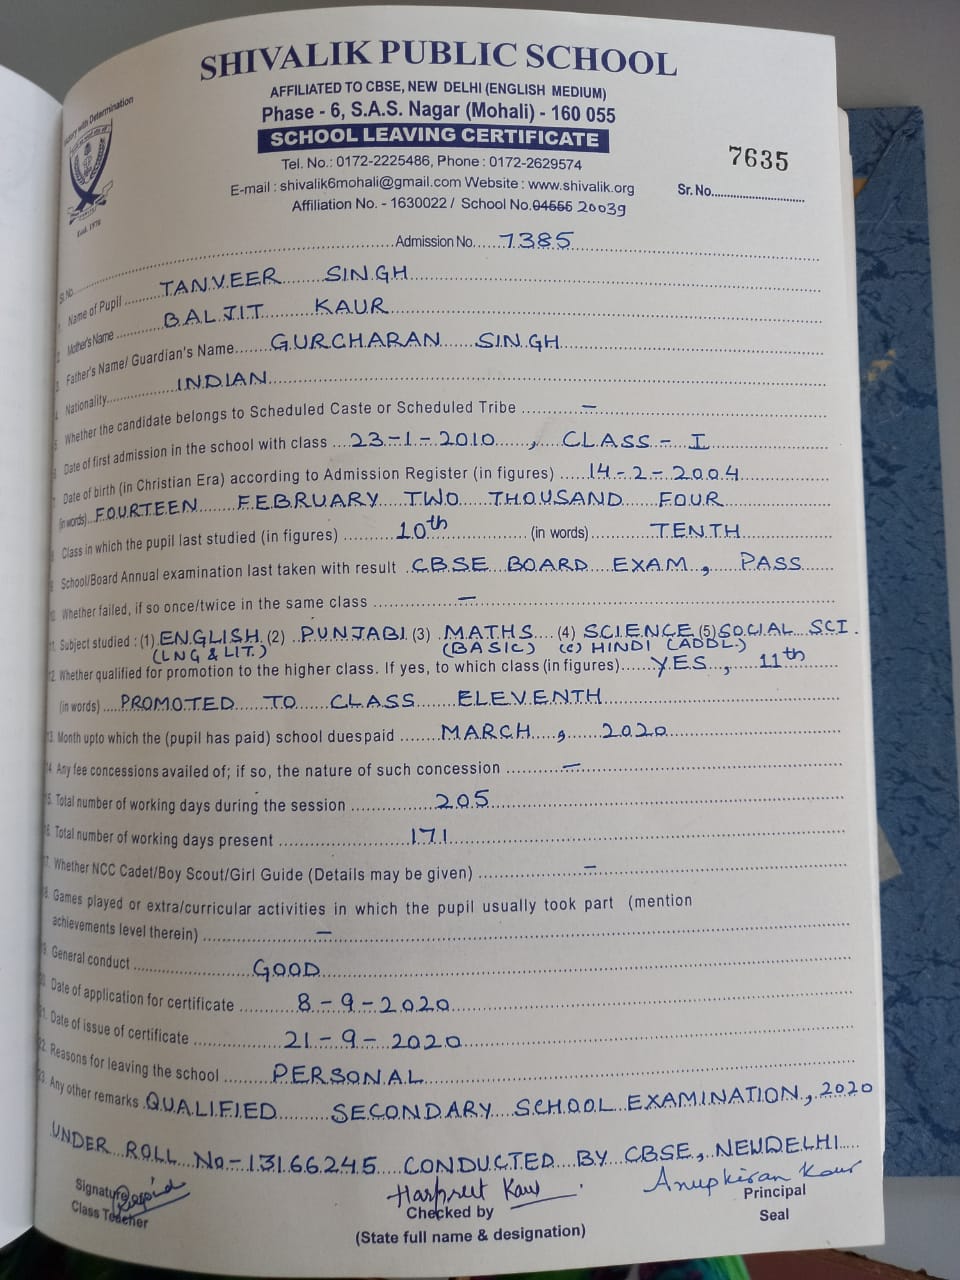 SHIVALIK PUBLIC SCHOOL
AFFILIATED TO CBSE, NEW DELHI (ENGLISH MEDIUM)
Phase - 6, S.A.S. Nagar (Mohali) - 160 055
SCHOOL LEAVING CERTIFICATE
Tel. No.: 0172-2225486, Phone : 0172-2629574
7635
E-mail : shivalik6mohali@gmail.com Website : www.shivalik.org
Sr. No.
Affiliation No. - 1630022 / School No. 04555 20039
with Determination
Estd. 1970
Sl.No. Admission No. 7385
1. Name of Pupil TANVEER SINGH
2. Mother's Name BALJIT KAUR
3. Father's Name/ Guardian's Name GURCHARAN SINGH
4. Nationality INDIAN
5. Whether the candidate belongs to Scheduled Caste or Scheduled Tribe –
6. Date of first admission in the school with class 23-1-2010, CLASS - I
7. Date of birth (in Christian Era) according to Admission Register (in figures) 14-2-2004
(in words) FOURTEEN FEBRUARY TWO THOUSAND FOUR
8. Class in which the pupil last studied (in figures) 10th (in words) TENTH
9. School/Board Annual examination last taken with result CBSE BOARD EXAM, PASS
10. Whether failed, if so once/twice in the same class –
11. Subject studied : (1) ENGLISH (2) PUNJABI (3) MATHS (4) SCIENCE (5) SOCIAL SCI.
(LNG & LIT.) (BASIC) (6) HINDI (ADDL.)
12. Whether qualified for promotion to the higher class. If yes, to which class (in figures) YES, 11th
(in words) PROMOTED TO CLASS ELEVENTH
13. Month upto which the (pupil has paid) school duespaid MARCH, 2020
14. Any fee concessions availed of; if so, the nature of such concession –
15. Total number of working days during the session 205
16. Total number of working days present 171
17. Whether NCC Cadet/Boy Scout/Girl Guide (Details may be given) –
18. Games played or extra/curricular activities in which the pupil usually took part (mention
achievements level therein) –
19. General conduct GOOD
20. Date of application for certificate 8-9-2020
21. Date of issue of certificate 21-9-2020
22. Reasons for leaving the school PERSONAL
23. Any other remarks QUALIFIED SECONDARY SCHOOL EXAMINATION, 2020
UNDER ROLL No-13166245 CONDUCTED BY CBSE, NEWDELHI
Harpreet Kaur Anupkiran Kaur
Signature Checked by Principal
Class Teacher (State full name & designation) Seal